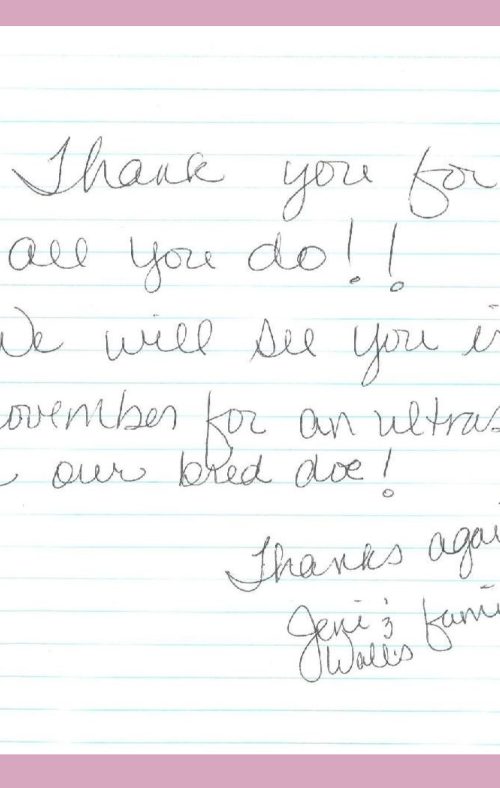 Thank you for
all you do!!
We will see you i
ovember for an ultras
our bred doe!
Thanks agai
Jeni & fami
Wallis